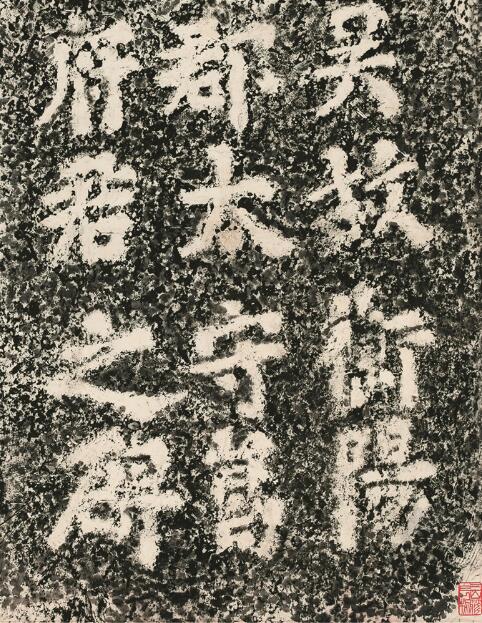 吴故衡陽
郡太守葛
府君之碑